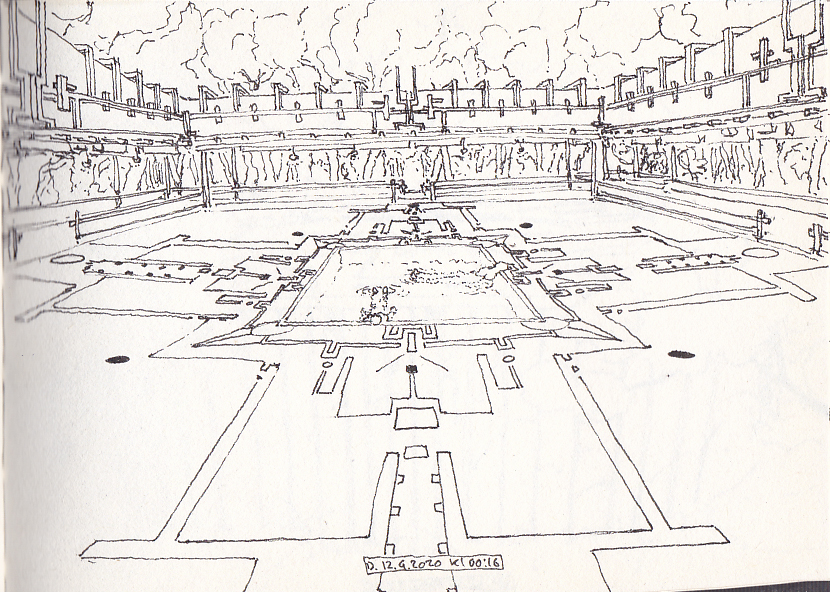 D. 12.9.2020 Kl 00:16